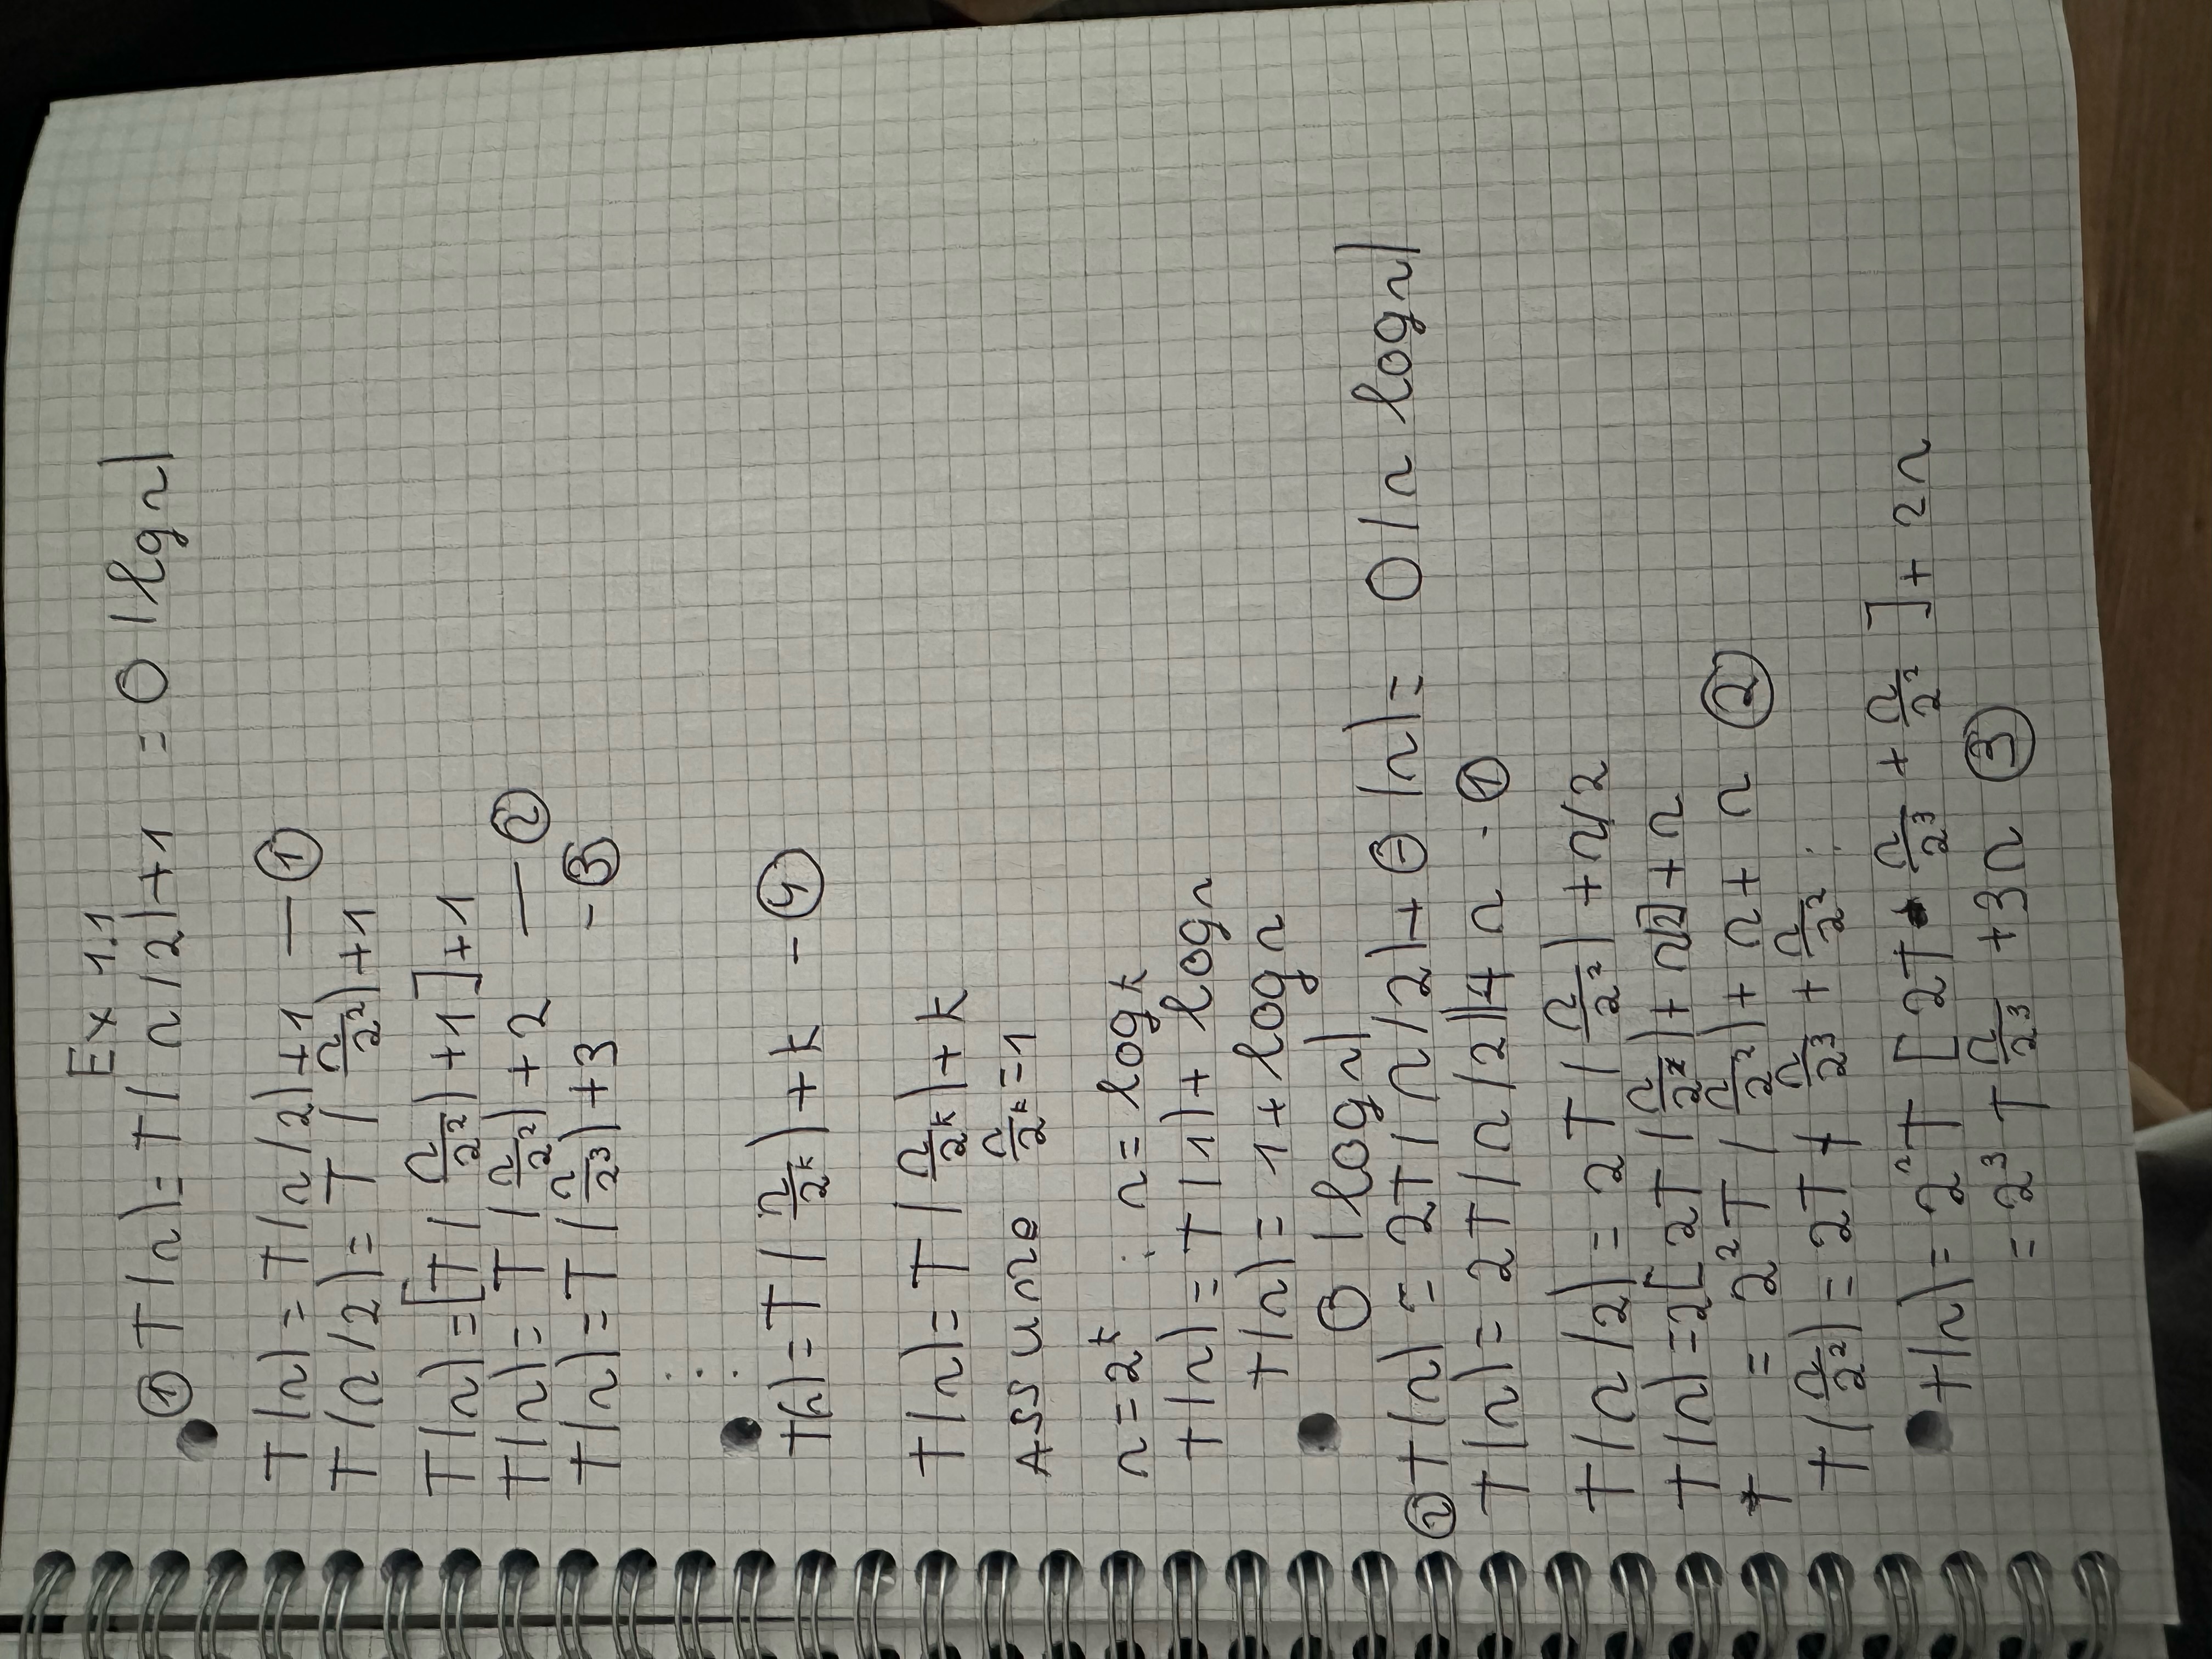 Ex 1.1
① T(n) = T(n/2)+1 = O(lg n)
T(n) = T(n/2)+1 — ①
T(n/2) = T(n/2²)+1
T(n) = [T(n/2²)+1]+1
T(n) = T(n/2²)+2 — ②
T(n) = T(n/2³)+3 - ③
⋮
T(n) = T(n/2^k)+k - ④
T(n) = T(n/2^k)+k
Assume n/2^k = 1
n = 2^k ; n = log k
T(n) = T(1) + log n
T(n) = 1 + log n
O(log n)
② T(n) = 2T(n/2) + Θ(n) = O(n log n)
T(n) = 2T(n/2)+ n - ①
T(n/2) = 2T(n/2²) + n/2
T(n) = 2[2T(n/2²) + n/2] + n
= 2²T(n/2²) + n + n ②
T(n/2²) = 2T n/2³ + n/2² ;
T(n) = 2²T [2T n/2³ + n/2²] + 2n
= 2³ T n/2³ + 3n ③